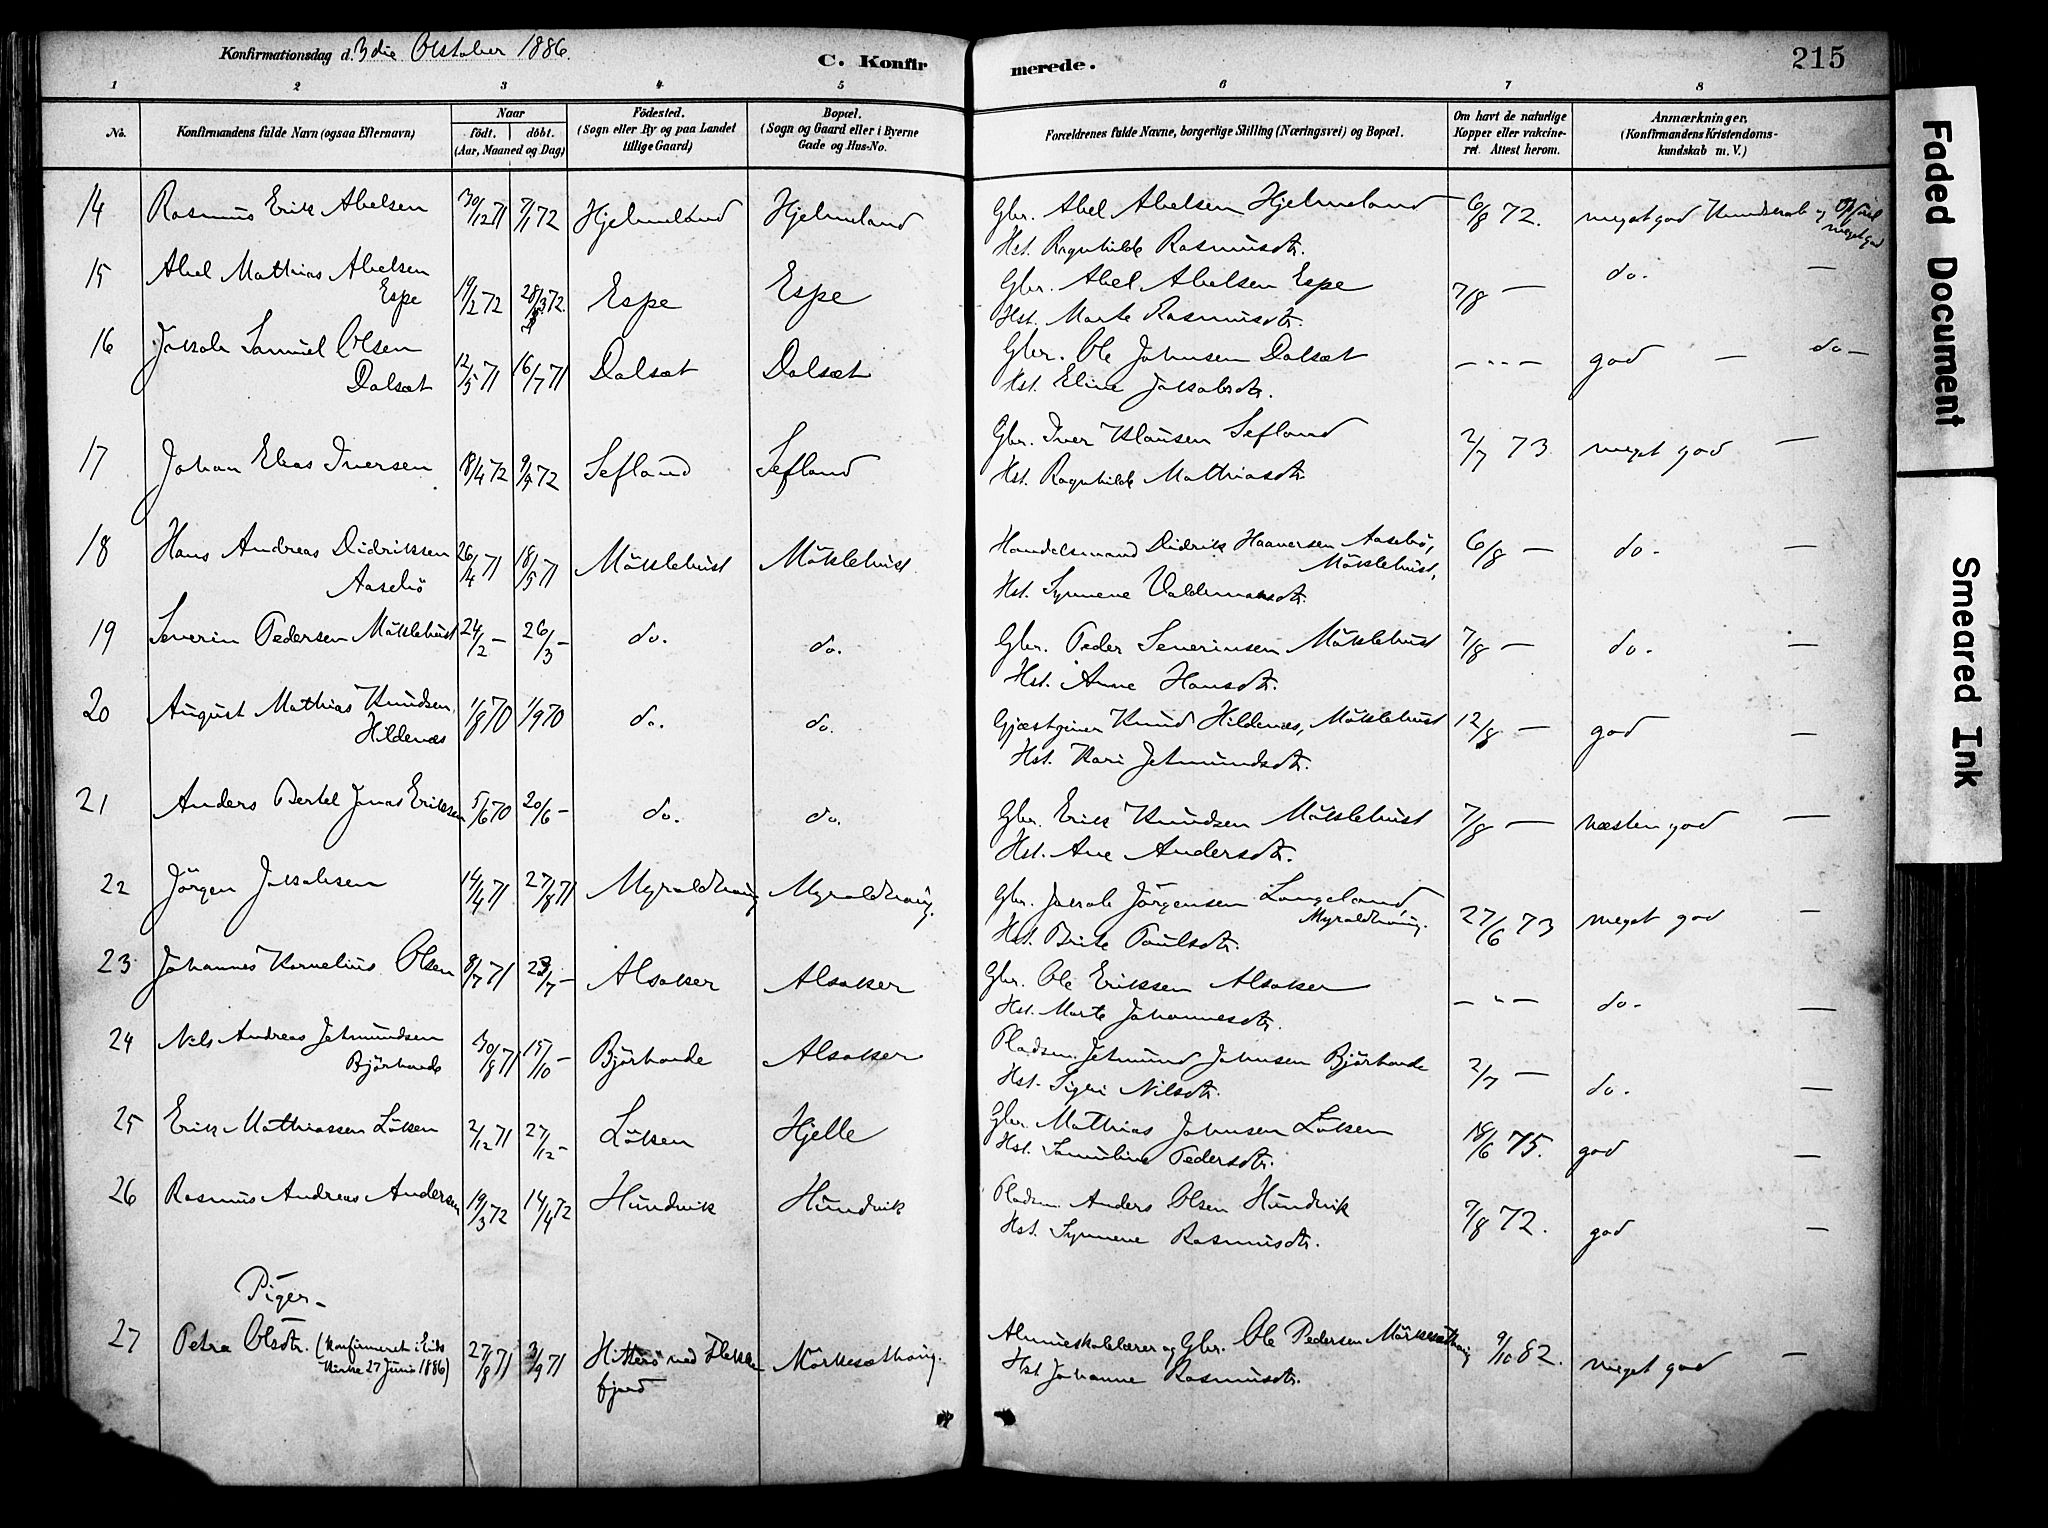 Konfirmationsdag d. 3die October 1886.
C. Konfirmerede.
215
1 2 3 4 5 6 7 8
No.
Konfirmandens fulde Navn (ogsaa Efternavn)
Naar
födt. döbt.
(Aar, Maaned og Dag)
Födested.
(Sogn eller By og paa Landet
tillige Gaard)
Bopæl.
(Sogn og Gaard eller i Byerne
Gade og Hus-No.
Forældrenes fulde Navne, borgerlige Stilling (Næringsvei) og Bopæl.
Om havt de naturlige
Kopper eller vakcine-
ret. Attest herom.
Anmærkninger.
(Konfirmandens Kristendoms-
kundskab m. V.)
14 Rasmus Erik Abelsen 30/12 71 7/1 72 Hjelmeland Hjelmeland Gbr. Abel Abelsen Hjelmeland 6/8 72. meget god Kundskab og Opførsel
meget god
Hst. Ragnhilde Rasmusdtr.
15 Abel Mathias Abelsen
Espe 19/2 72 28/3 72. Espe Espe Gbr. Abel Abelsen Espe 7/8 — do. —
Hst. Marte Rasmusdtr.
16 Jakob Samuel Olsen
Dalsæt 12/5 71 16/7 71 Dalsæt Dalsæt Gbr. Ole Johnsen Dalsæt — " — god — do —
Hst. Eline Jakobsdtr.
17 Johan Elias Iversen 18/4 72 9/7 72 Sefland Sefland Gbr. Iver Klausen Sefland 2/7 73 meget god —
Hst. Ragnhilde Mathiasdtr.
18 Hans Andreas Didriksen
Aasebö 26/4 71 18/5 71 Möklebust Möklebust Handelsmand Didrik Haaversen Aasebö,
Möklebust, 6/8 — do. —
Hst. Synneve Valdemarsdtr.
19 Severin Pedersen Möklebust 24/2 — 26/3 — do. do. Gbr. Peder Severinsen Möklebust 7/8 — do. —
Hst. Anne Hansdtr.
20 August Mathias Knudsen
Hildenæs 1/8 70 1/9 70 do. do. Gjæstgiver Knud Hildenæs, Möklebust 12/8 — god —
Hst. Kari Jetmundsdtr.
21 Anders Bertel Jonas Eriksen 5/6 70 20/6 — do. do. Gbr. Erik Knudsen Möklebust 7/8 — næsten god —
Hst. Ane Andersdtr.
22 Jörgen Jakobsen 14/4 71 27/8 71 Myraldhaug Myraldhaug. Gbr. Jakob Jörgensen Langeland
Myraldhaug. 27/6 73 meget god —
Hst. Brite Paulsdtr.
23 Johannes Kornelius Olsen 8/7 71 23/7 — Alsaker Alsaker Gbr. Ole Eriksen Alsaker — " — do. —
Hst. Marte Johannesdtr.
24 Nils Andreas Jetmundsen
Björhovde 30/8 71 15/10 — Björhovde Alsaker Pladsm. Jetmund Johnsen Björhovde 2/7 — do. —
Hst. Sigri Nilsdtr.
25 Erik Mathiassen Löken 2/12 71 27/12 — Löken Hjelle Gbr. Mathias Johnsen Löken 18/6 75. god —
Hst. Samuline Pedersdtr.
26 Rasmus Andreas Andersen 19/3 72 14/4 72 Hundvik Hundvik Pladsm. Anders Olsen Hundvik 7/8 72. god —
Hst. Synneve Rasmusdtr.
Piger —
27 Petra Olsdtr. (konfirmeret i Eids
Kirke 27 Juni 1886) 27/8 71 3/9 71 Hitterö ved Flekke
fjord Mörkesæthaug. Almueskolelærer og Gbr. Ole Pedersen Mörkesæthaug 9/10 82. meget god —
Hst Johanne Rasmusdtr.
Faded Document
Smeared Ink